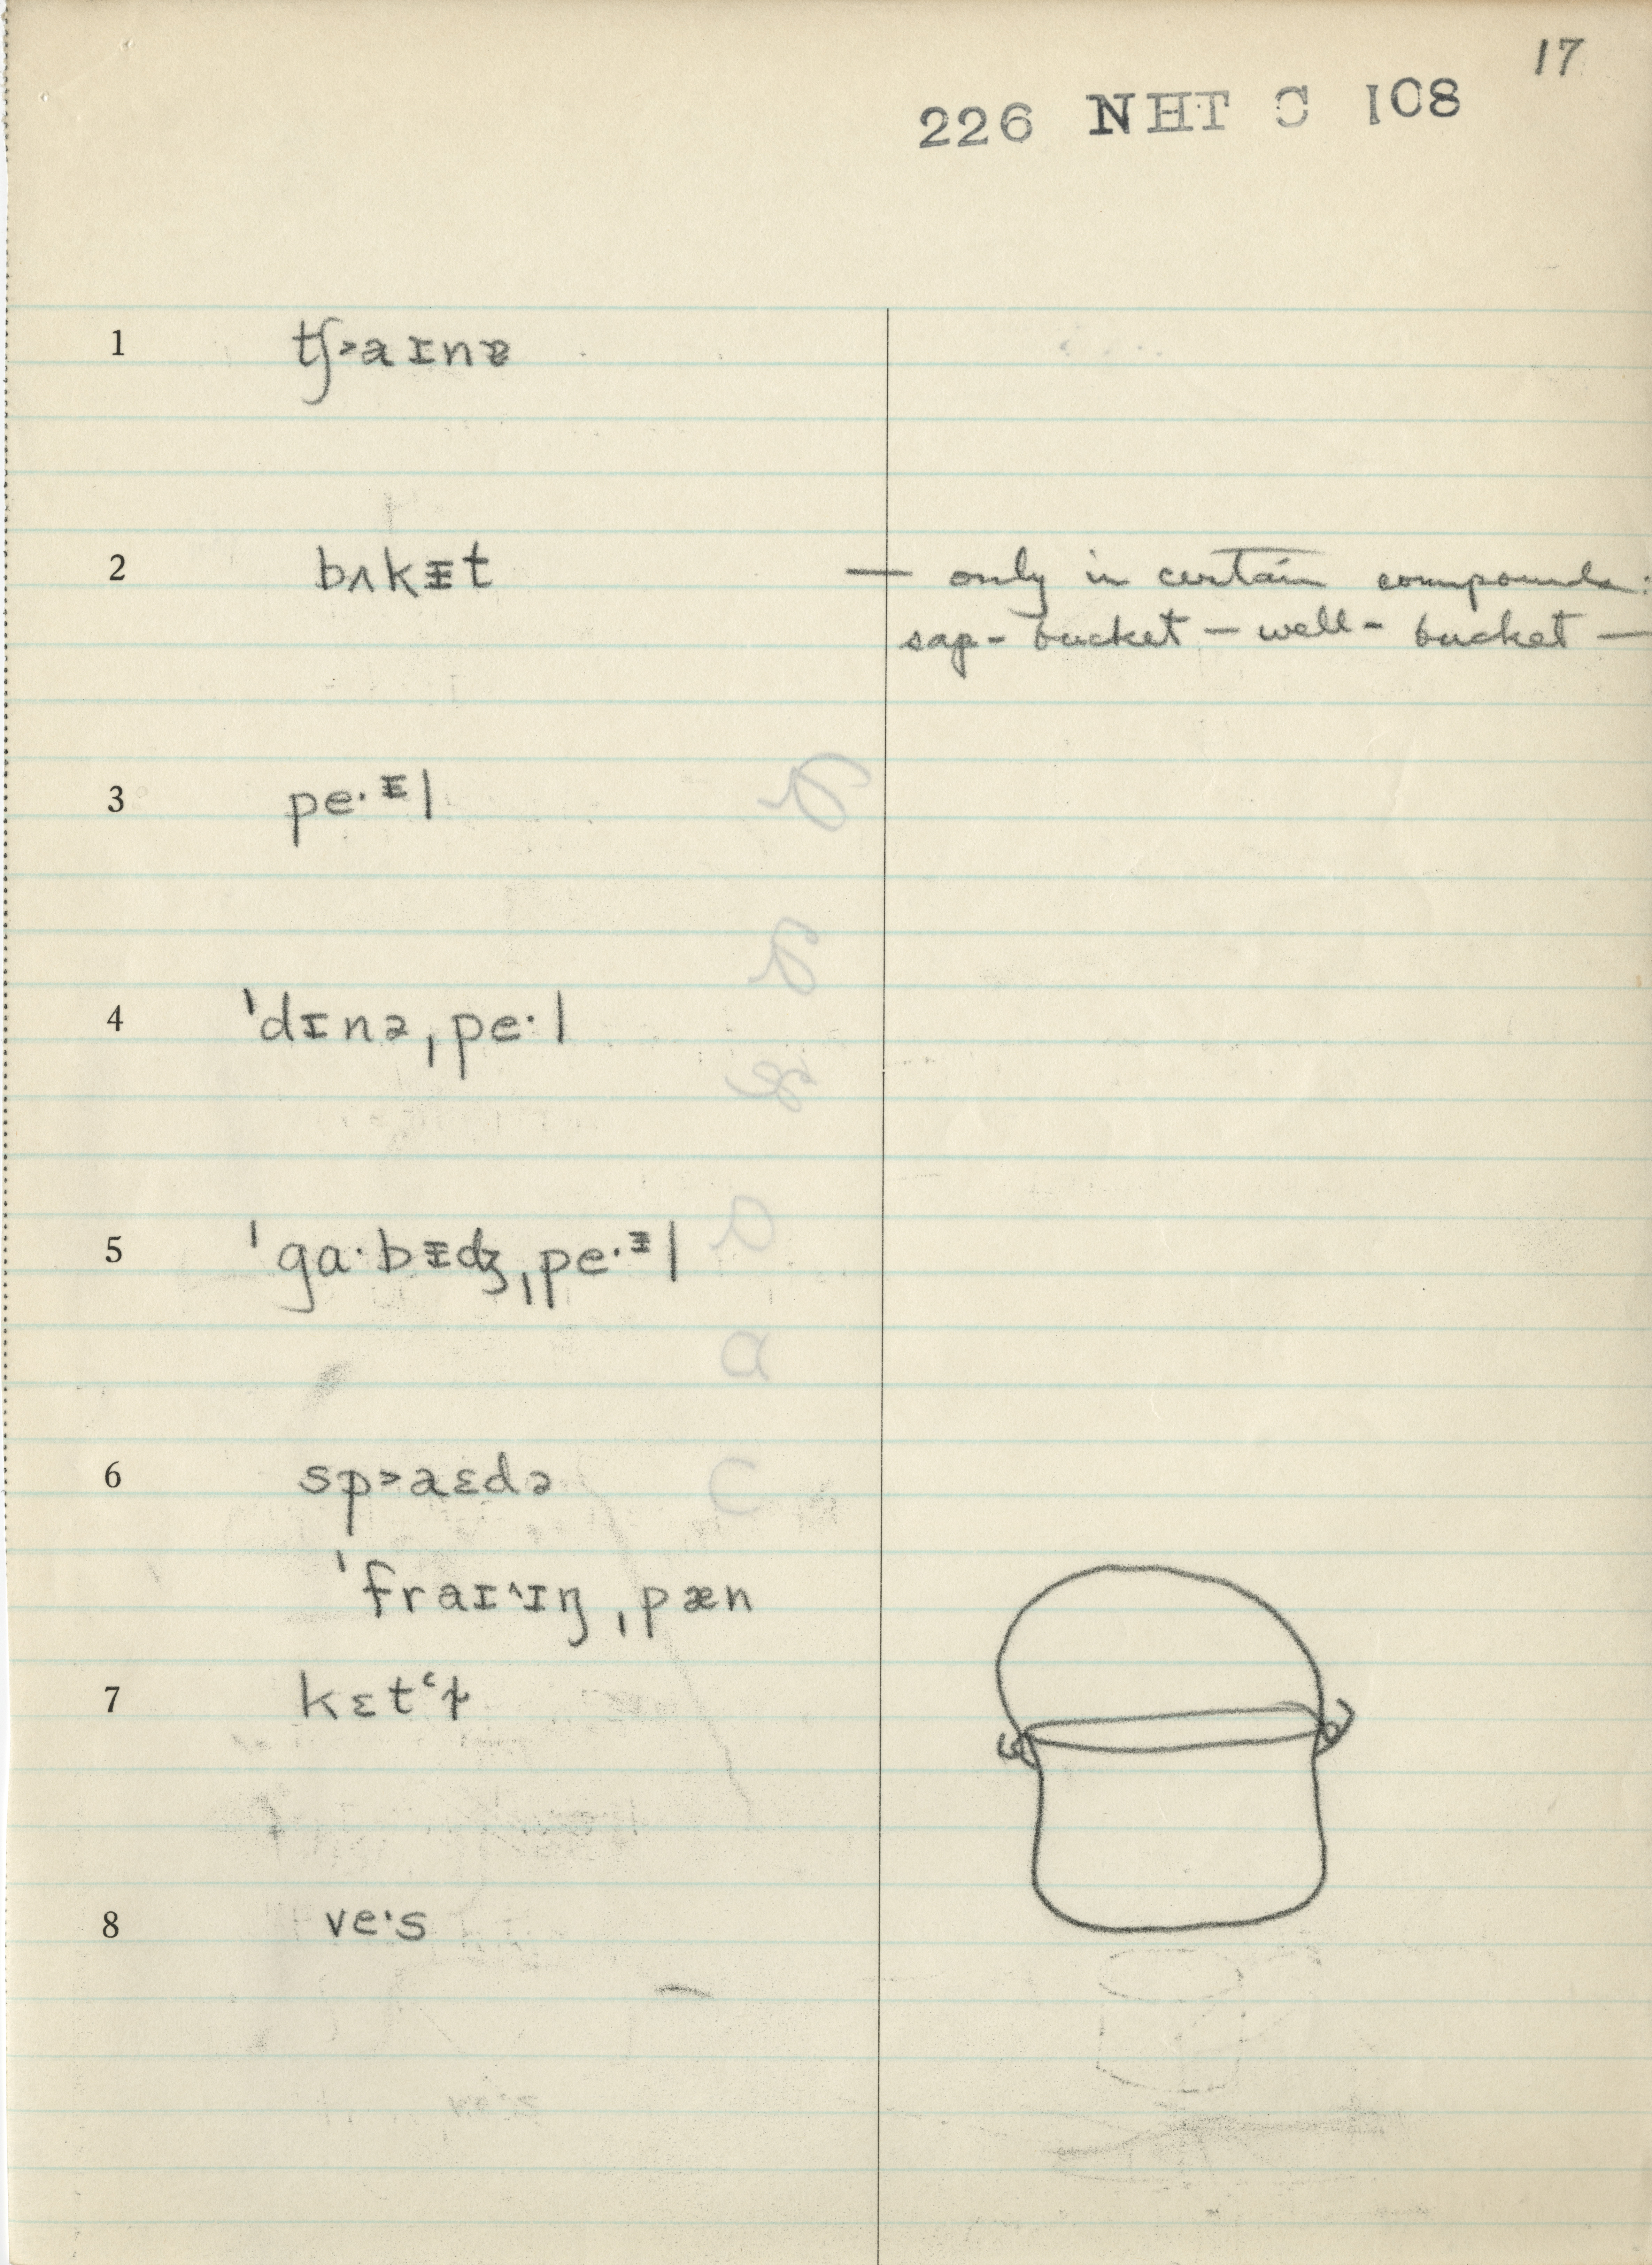 17
226 NHT C 108
1 tʃ˃aɪnɐ
2 bʌkᵻt — only in certain compounds:
sap-bucket — well-bucket —
3 pe·ᵻl
4 ˈdɪnəˌpe·l
5 ˈga·bᵻdʒˌpe·ᵻl
6 sp˃aɛdə
ˈfraɪ^ɪŋˌpæn
7 kɛtʻɫ
8 ve·s